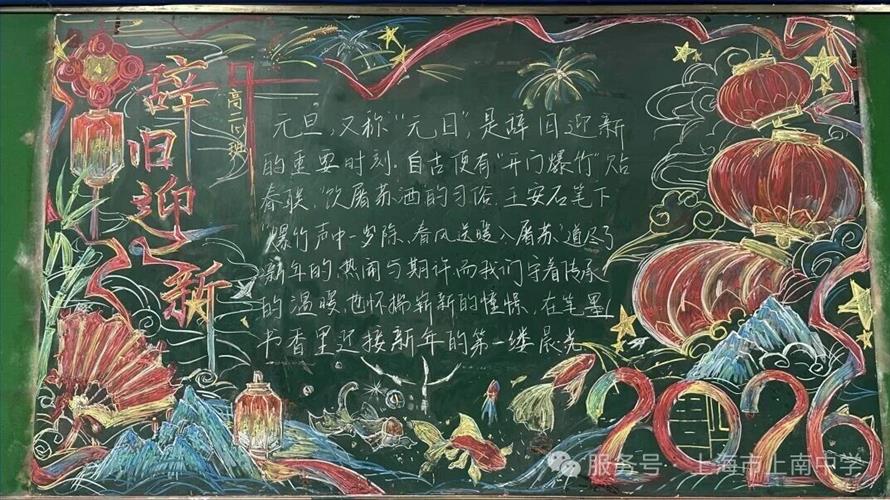 辞旧迎新
元旦,又称“元日”,是辞旧迎新
的重要时刻.自古便有“开门爆竹”贴
春联,饮屠苏酒的习俗.王安石笔下
“爆竹声中一岁除,春风送暖入屠苏”道尽了
新年的热闹与期许而我们守着传承
的温暖,也怀揣崭新的憧憬,在笔墨
书香里迎接新年的第一缕晨光
2026
服务号·上海市上南中学